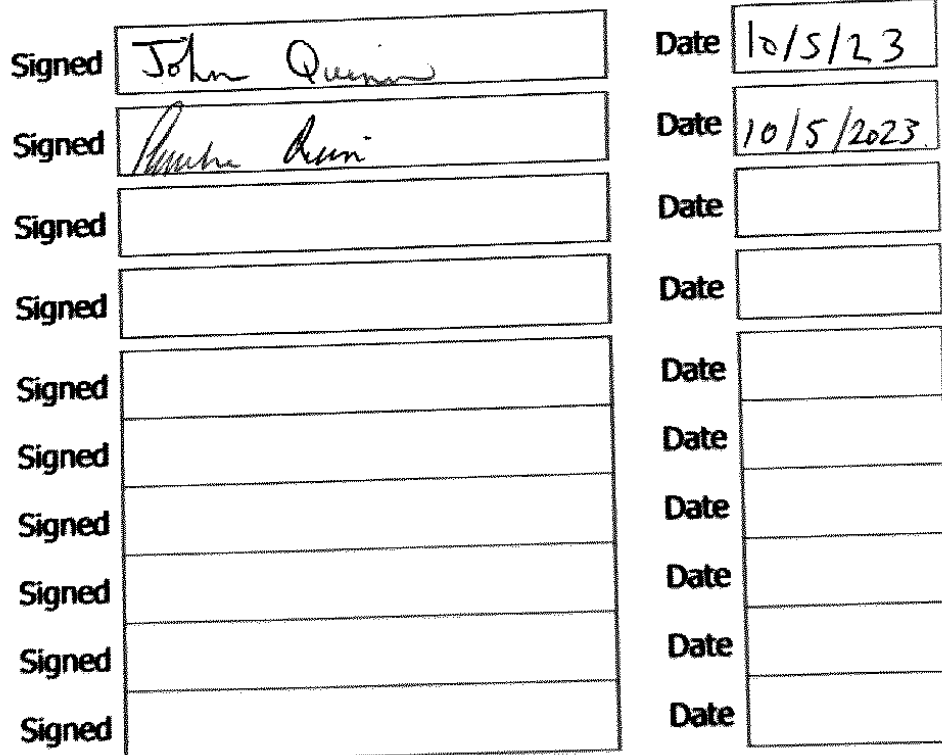 Signed John Quinn Date 10/5/23
Signed Quinn Date 10/5/2023.
Signed Date
Signed Date
Signed Date
Signed Date
Signed Date
Signed Date
Signed Date
Signed Date